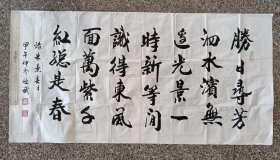 勝日尋芳
泗水濱無
邊光景一
時新等間
識得東風
面萬紫千
紅總是春
朱熹春日
甲午仲冬